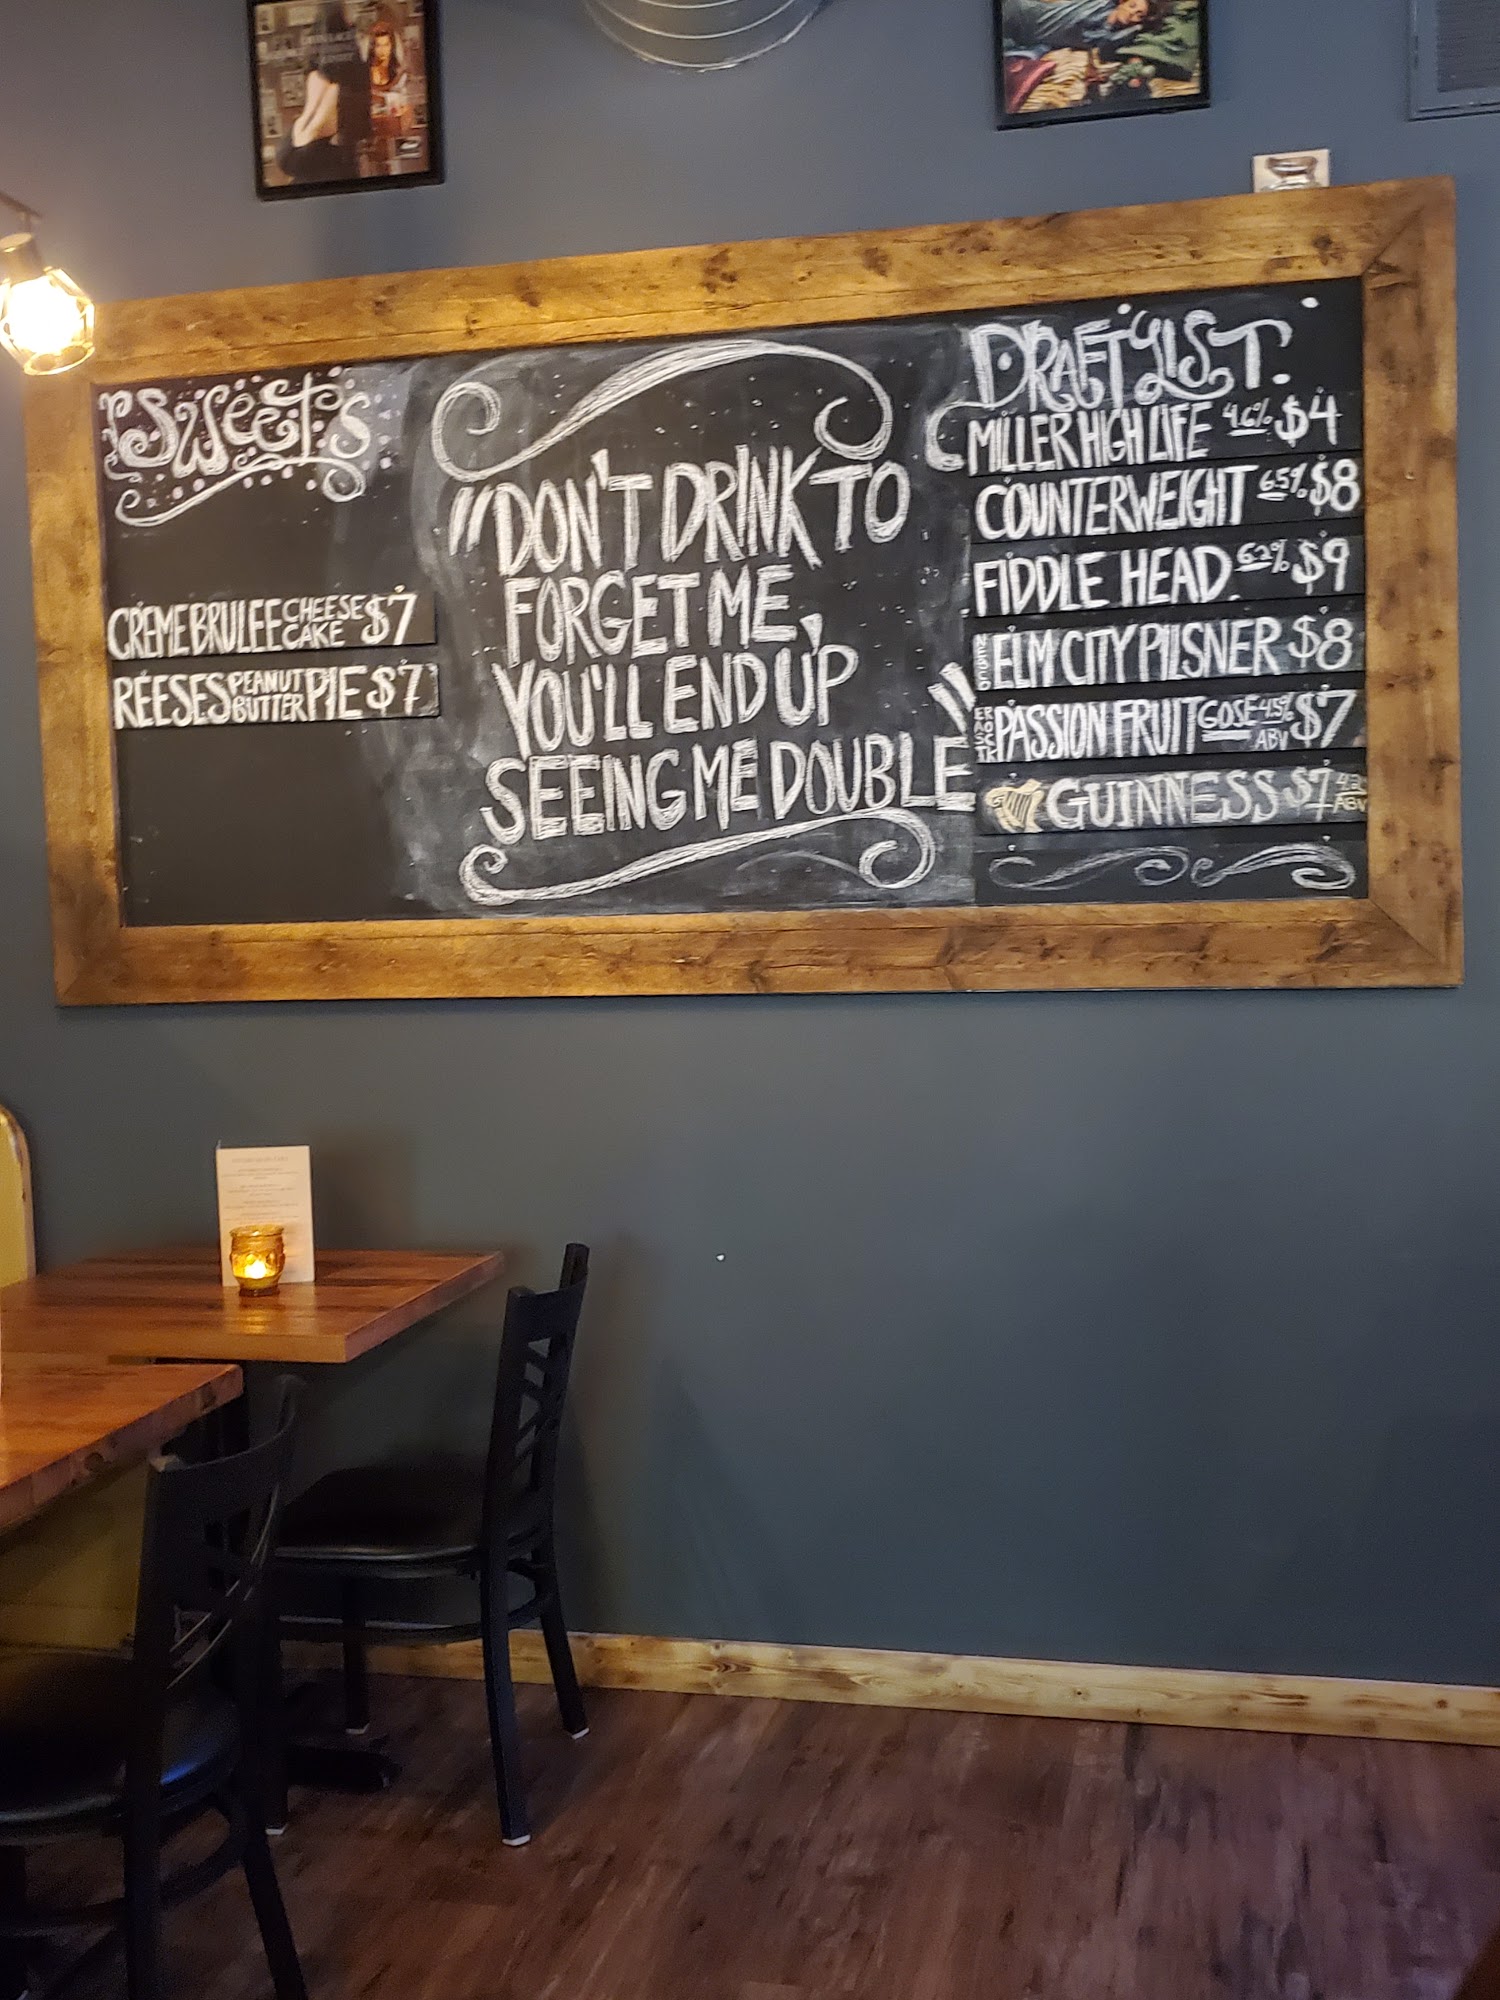 SWEETS
CREME BRULEE CHEESE CAKE $7
REESES PEANUT BUTTER PIE $7
"DON'T DRINK TO
FORGET ME,
YOU'LL END UP
SEEING ME DOUBLE"
DRAFT LIST.
MILLER HIGH LIFE 4.6% $4
COUNTERWEIGHT 6.5% $8
FIDDLE HEAD. 6.2% $9
ELM CITY PILSNER $8
PASSION FRUIT GOSE 4.5% ABV $7
GUINNESS $7 4.2 ABV